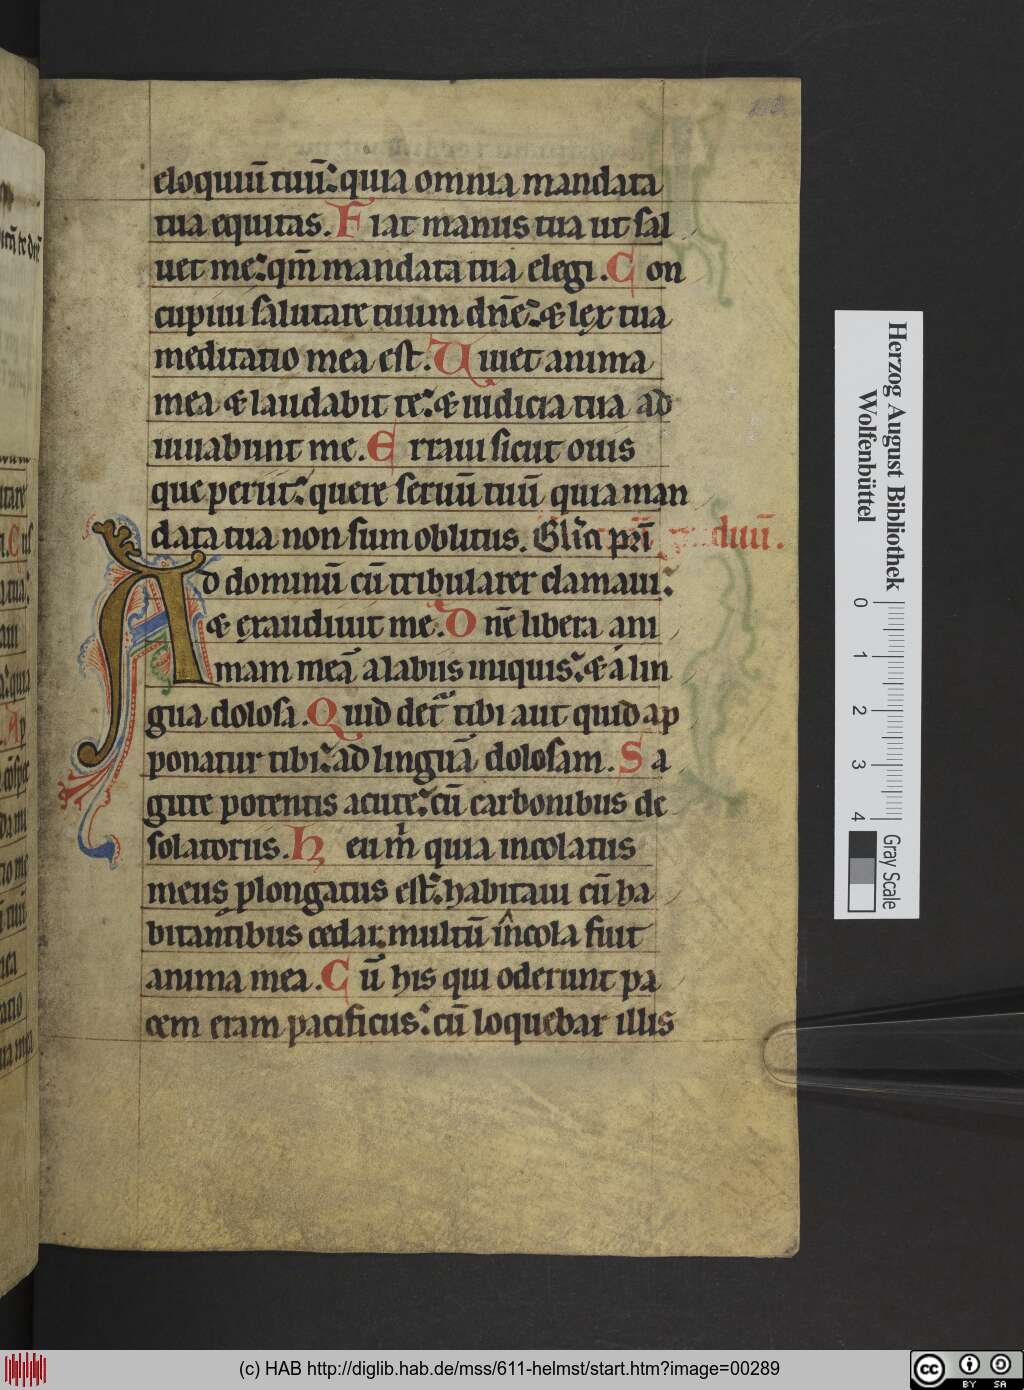 eloquiũ tuũ: quia omnia mandata
tua equitas. Fiat manus tua ut sal
uet me: qm̃ mandata tua elegi. Con
cupiui salutare tuum dñe: & lex tua
meditatio mea est. Uiuet anima
mea & laudabit te: & iudicia tua ad
iuuabunt me. Erraui sicut ouis
que periit: quere seruũ tuũ quia man
data tua non sum oblitus. Glĩa pr̃i
Ad dominũ cũ tribularer clamaui:
& exaudiuit me. Dñe libera ani
mam meã a labiis iniquis: & a lin
gua dolosa. Quid det̃ tibi aut quid ap
ponatur tibi: ad linguã dolosam. Sa
gitte potentis acute: cũ carbonibus de
solatoriis. Heu m quia incolatus
meus plongatus est: habitaui cũ ha
bitantibus cedar: multũ incola fuit
anima mea. Cũ his qui oderunt pa
cem eram pacificus: cũ loquebar illis
Herzog August Bibliothek
Wolfenbüttel
0 1 2 3 4
Gray Scale
(c) HAB http://diglib.hab.de/mss/611-helmst/start.htm?image=00289
cc BY SA